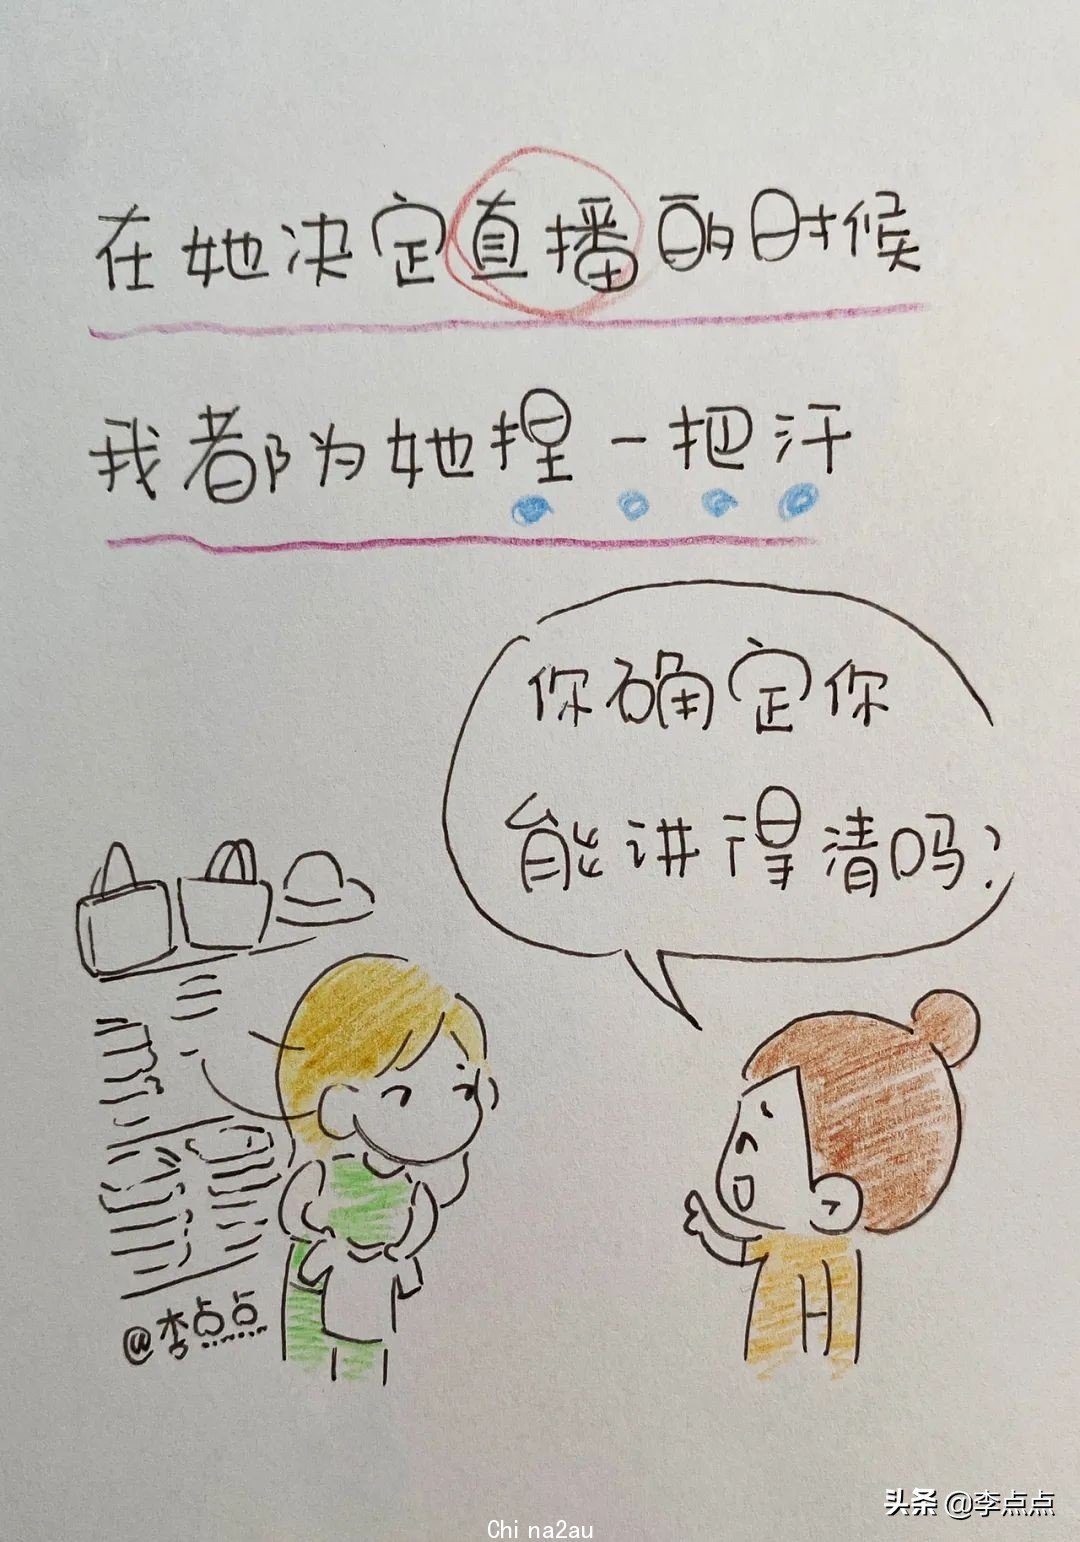 在她决定直播的时候
我都为她捏一把汗
你确定你
能讲得清吗?
@李点点
头条 @李点点
China2au